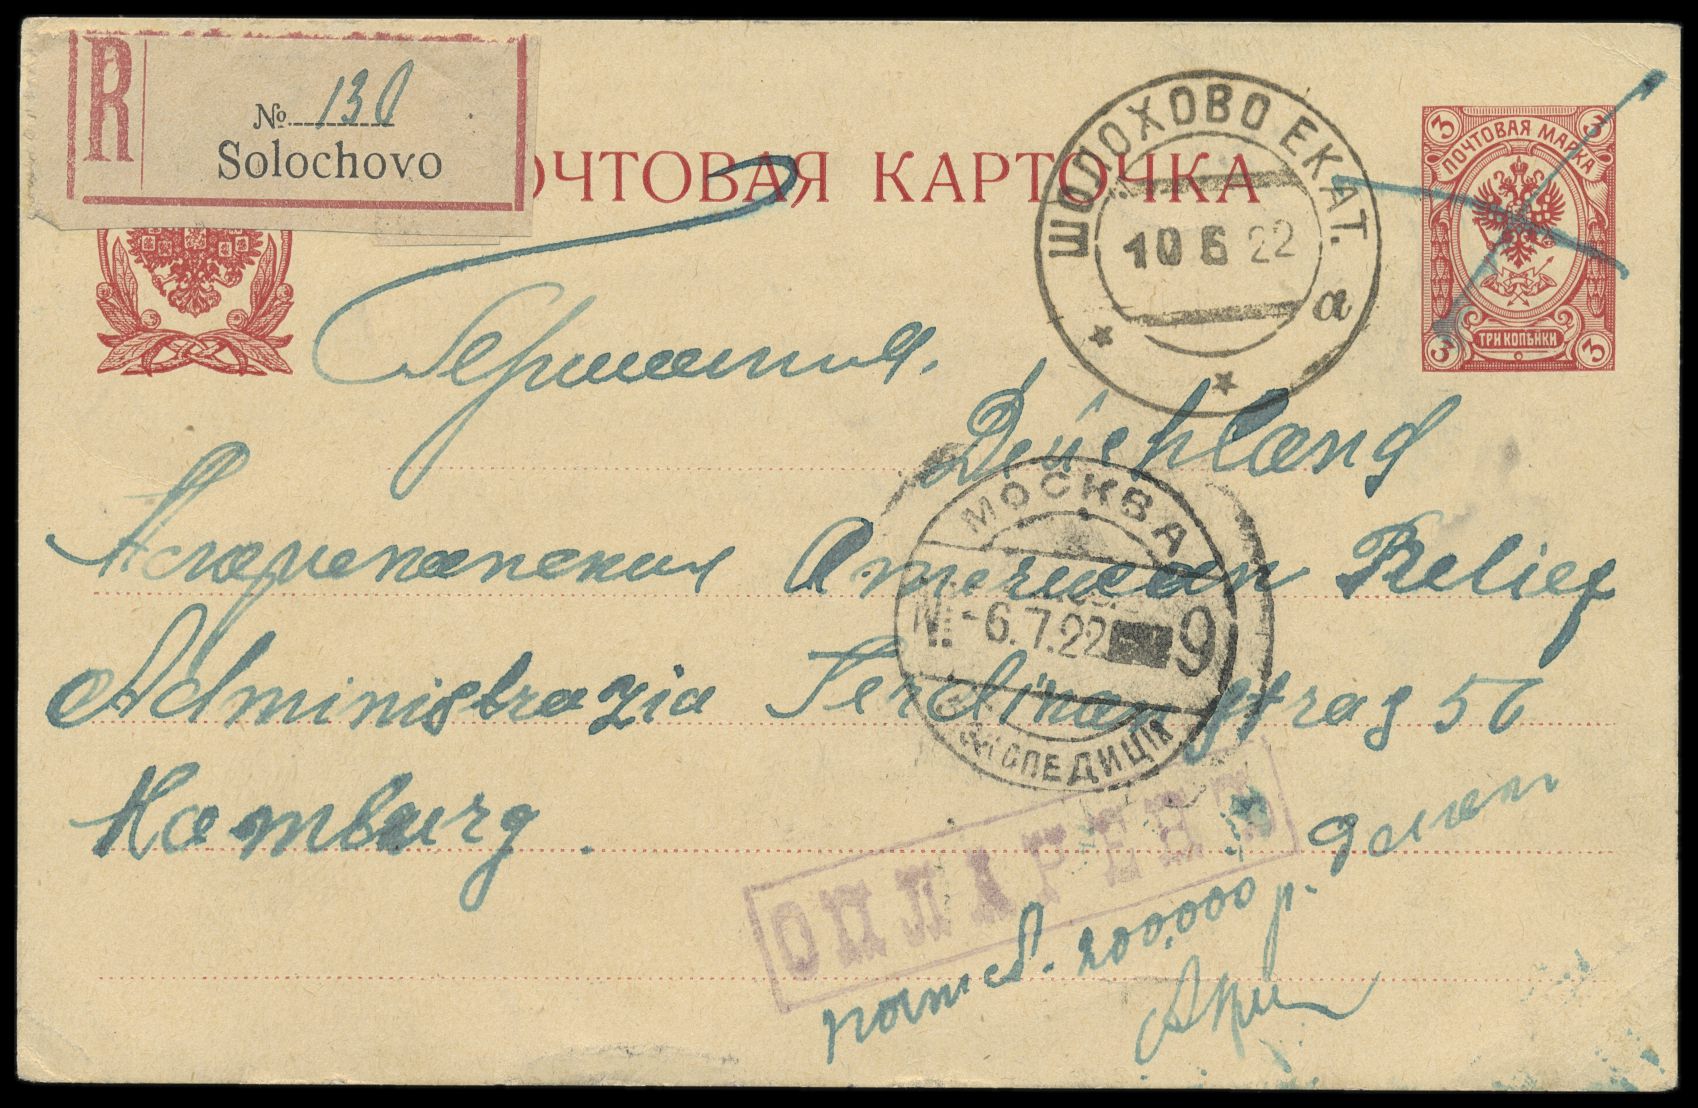 R
№ 130
Solochovo
ПОЧТОВАЯ КАРТОЧКА
ШОЛОХОВО ЕКАТ.
10 6 22
а
3 3
ПОЧТОВАЯ МАРКА
ТРИ КОПѢЙКИ
3 3
Германия.
Deüchland
American Relief
Administrazia Ferdinanstras 56
Hamburg.
МОСКВА
-6.7.22 9
ЭКСПЕДИЦІЯ
200.000 р. денег